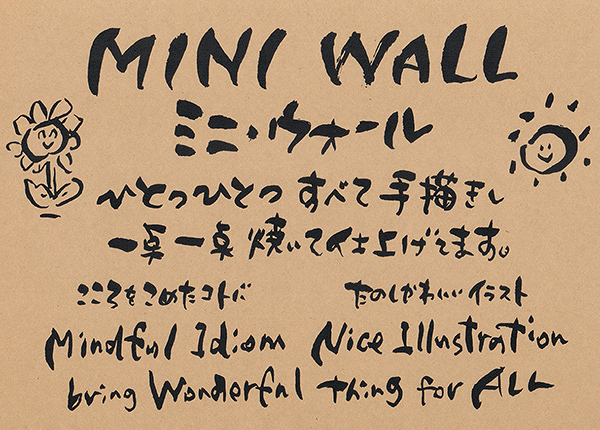 MINI WALL
ミニ・ウォール
ひとつひとつ すべて 手描きし
一点一点 焼いて仕上げてます。
こころをこめたコトバ たのしかわいいイラスト
Mindful Idiom Nice Illustration
bring Wonderful thing for ALL